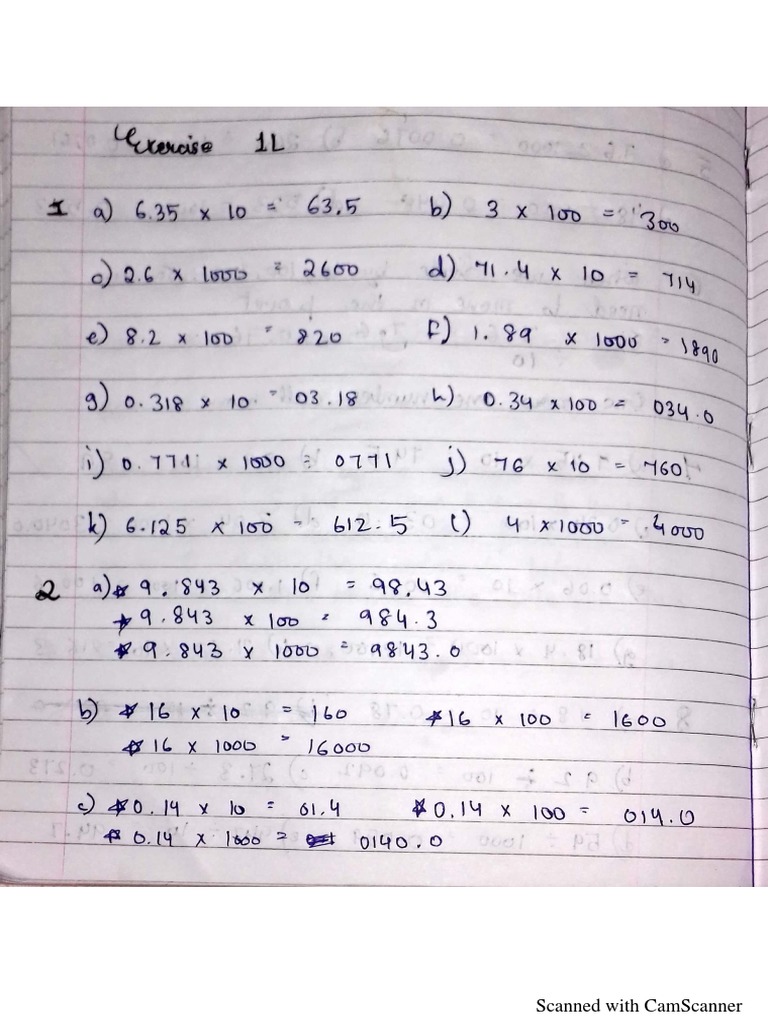 Exercise 1L
1 a) 6.35 x 10 = 63.5 b) 3 x 100 = 300
c) 2.6 x 1000 = 2600 d) 71.4 x 10 = 714
e) 8.2 x 100 = 820 f) 1.89 x 1000 = 1890
g) 0.318 x 10 = 03.18 h) 0.34 x 100 = 034.0
i) 0.771 x 1000 = 0771 j) 76 x 10 = 760
k) 6.125 x 100 = 612.5 l) 4 x 1000 = 4000
2 a) * 9.843 x 10 = 98.43
* 9.843 x 100 = 984.3
* 9.843 x 1000 = 9843.0
b) * 16 x 10 = 160 * 16 x 100 = 1600
* 16 x 1000 = 16000
c) * 0.14 x 10 = 01.4 * 0.14 x 100 = 014.0
* 0.14 x 1000 = 0140.0
Scanned with CamScanner